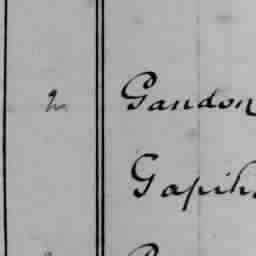 2 Gandon
Gapih